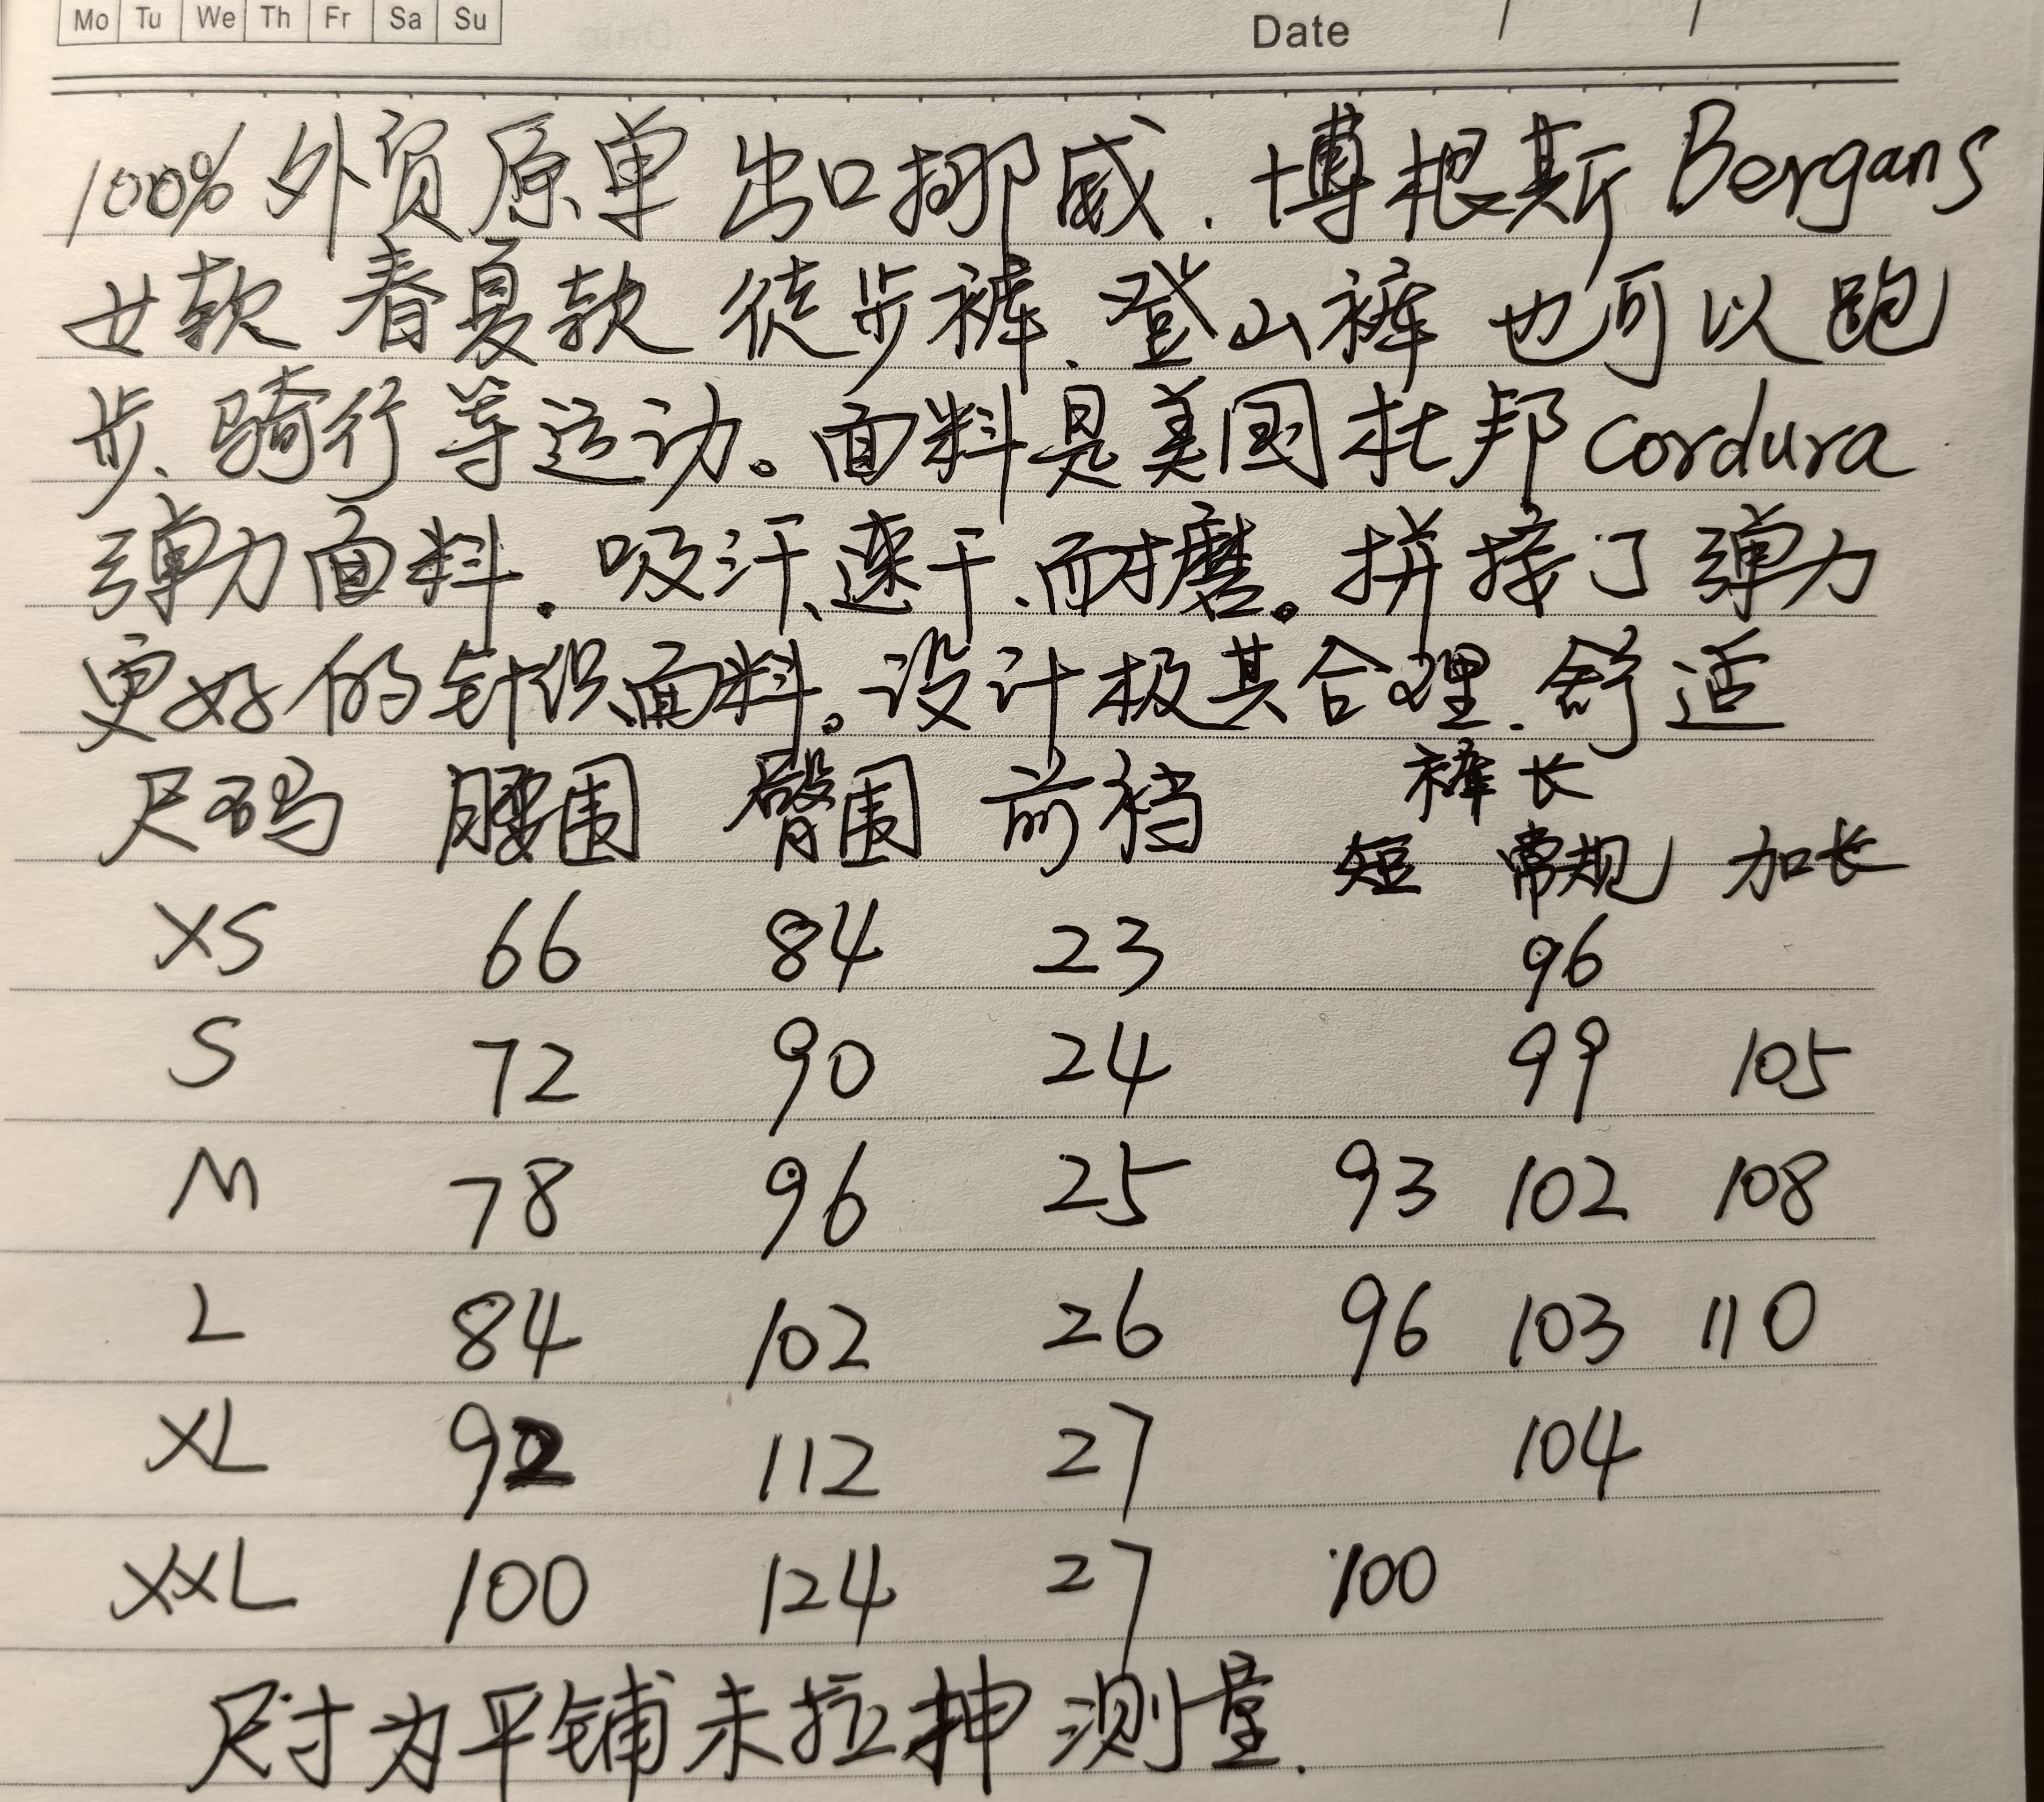 Mo Tu We Th Fr Sa Su Date / /
100%外贸原单 出口挪威.博根斯Bergans
女款 春夏款 徒步裤.登山裤 也可以跑
步、骑行等运动。面料是美国杜邦cordura
弹力面料.吸汗、速干、耐磨。拼接了弹力
更好的针织面料。设计极其合理.舒适
尺码 腰围 臀围 前裆 裤长
短 常规 加长
XS 66 84 23 96
S 72 90 24 99 105
M 78 96 25 93 102 108
L 84 102 26 96 103 110
XL 92 112 27 104
XXL 100 124 27 100
尺寸为平铺未拉抻测量.